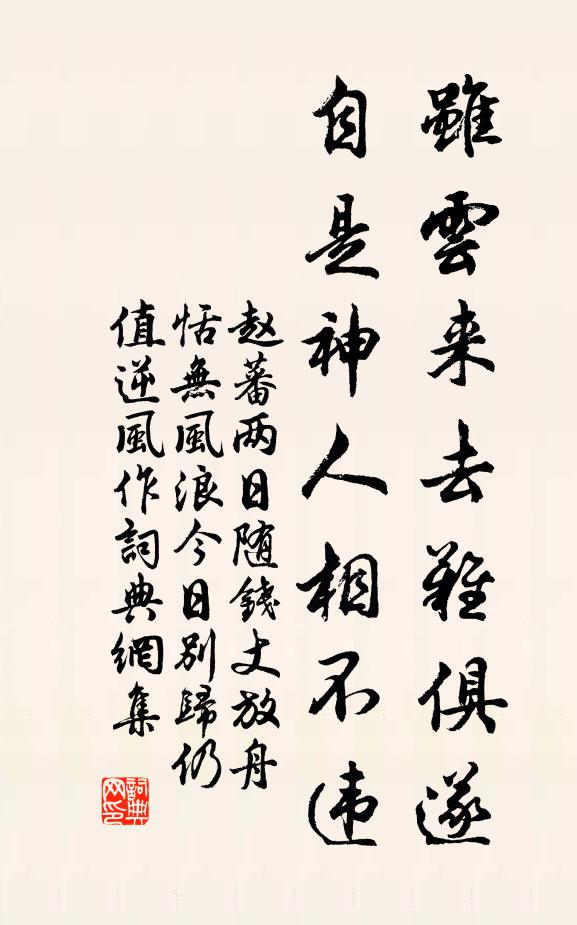 雖雲来去難俱遂
自是神人相不违
赵蕃两日随錢丈放舟
恬無風浪今日别歸仍
值逆風作詞典網集
詞典
网印